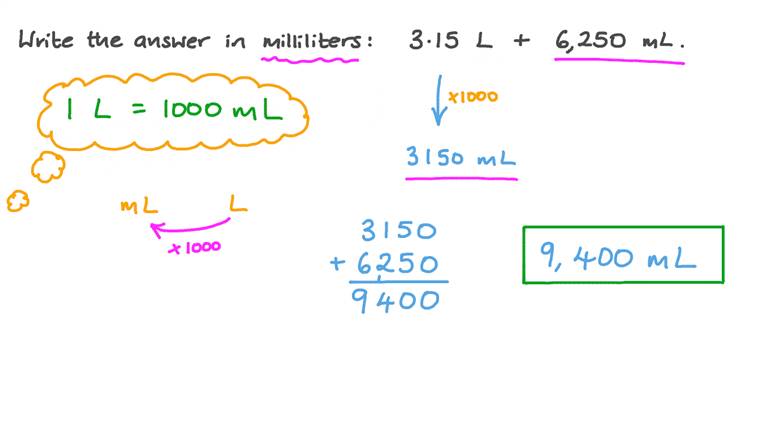 Write the answer in milliliters: 3·15 L + 6,250 mL.
1 L = 1000 mL
×1000
3150 mL
mL L
×1000
3150
+ 6,250
9400
9,400 mL